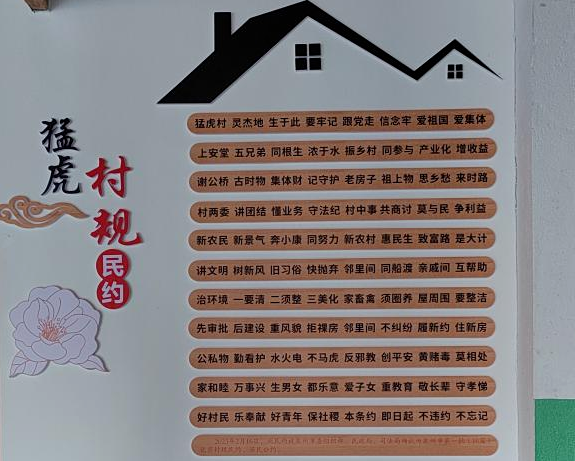 猛虎
村规
民约
猛虎村 灵杰地 生于此 要牢记 跟党走 信念牢 爱祖国 爱集体
上安堂 五兄弟 同根生 浓于水 振乡村 同参与 产业化 增收益
谢公桥 古时物 集体财 记守护 老房子 祖上物 思乡愁 来时路
村两委 讲团结 懂业务 守法纪 村中事 共商讨 莫与民 争利益
新农民 新景气 奔小康 同努力 新农村 惠民生 致富路 是大计
讲文明 树新风 旧习俗 快抛弃 邻里间 同船渡 亲戚间 互帮助
治环境 一要清 二须整 三美化 家畜禽 须圈养 屋周围 要整洁
先审批 后建设 重风貌 拒裸房 邻里间 不纠纷 履新约 住新房
公私物 勤看护 水火电 不马虎 反邪教 创平安 黄赌毒 莫相处
家和睦 万事兴 生男女 都乐意 爱子女 重教育 敬长辈 守孝悌
好村民 乐奉献 好青年 保社稷 本条约 即日起 不违约 不忘记